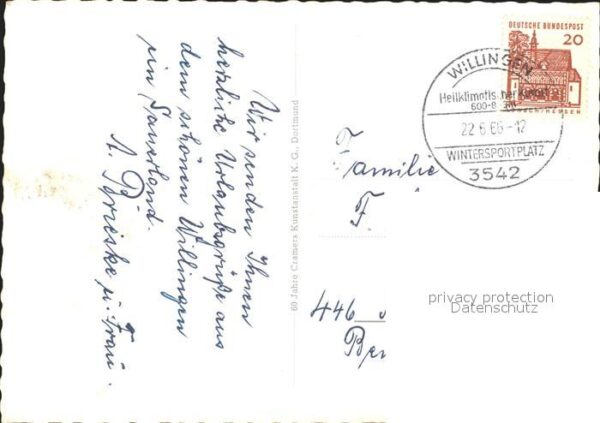 Wir senden Ihnen
herzliche Urlaubsgrüße aus
dem schönen Willingen
im Sauerland.
u. Frau.
60 Jahre Cramers Kunstanstalt K. G., Dortmund
DEUTSCHE BUNDESPOST
20
WILLINGEN
Heilklimatischer Kurort
22.6.66-12
WINTERSPORTPLATZ
3542
Familie
F
446
Ber
privacy protection
Datenschutz